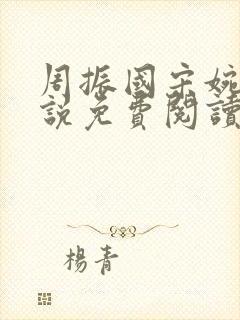 周振國宋婉
說免費閱讀
楊青